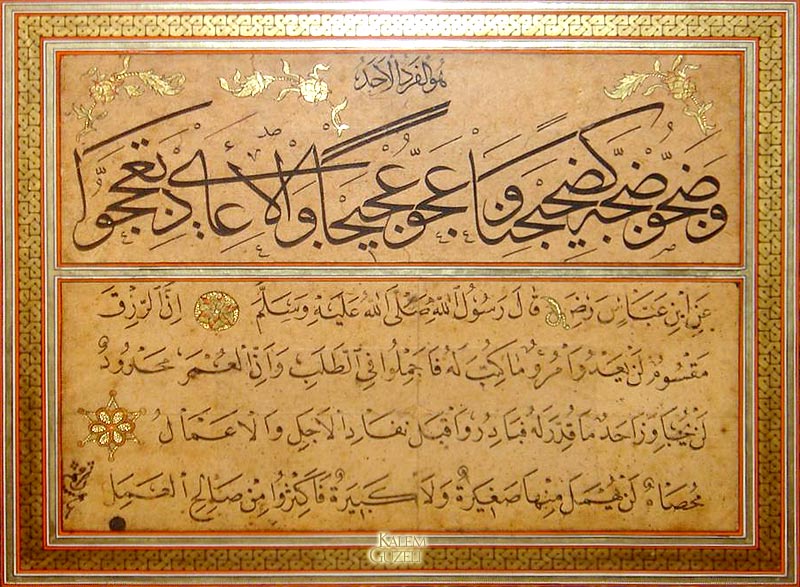 هو الفرد الاحد
وَضَجُّوا ضَجَّةً كَضَجِيجِنَا وَعَجُّوا عَجِيجًا وَالْأَعَادِي
عَنِ ابْنِ عَبَّاسٍ رَضِ قَالَ رَسُولُ اللهِ صَلَّى اللهُ عَلَيْهِ وَسَلَّمَ اِنَّ الرِّزْقَ
مَقْسُومٌ لَنْ يَعْدُوَ امْرُؤٌ مَا كُتِبَ لَهُ فَاَجْمِلُوا فِي الطَّلَبِ وَاِنَّ الْعُمْرَ مَحْدُودٌ
لَنْ يُجَاوِزَ اَحَدٌ مَا قُدِّرَ لَهُ فَبَادِرُوا قَبْلَ نَفَادِ الْاَجَلِ وَالْاَعْمَالُ
مُحْصَاةٌ لَنْ يُهْمَلَ مِنْهَا صَغِيرَةٌ وَلَا كَبِيرَةٌ فَاَكْثِرُوا مِنْ صَالِحِ الْعَمَلِ
KALEM
GÜZELİ